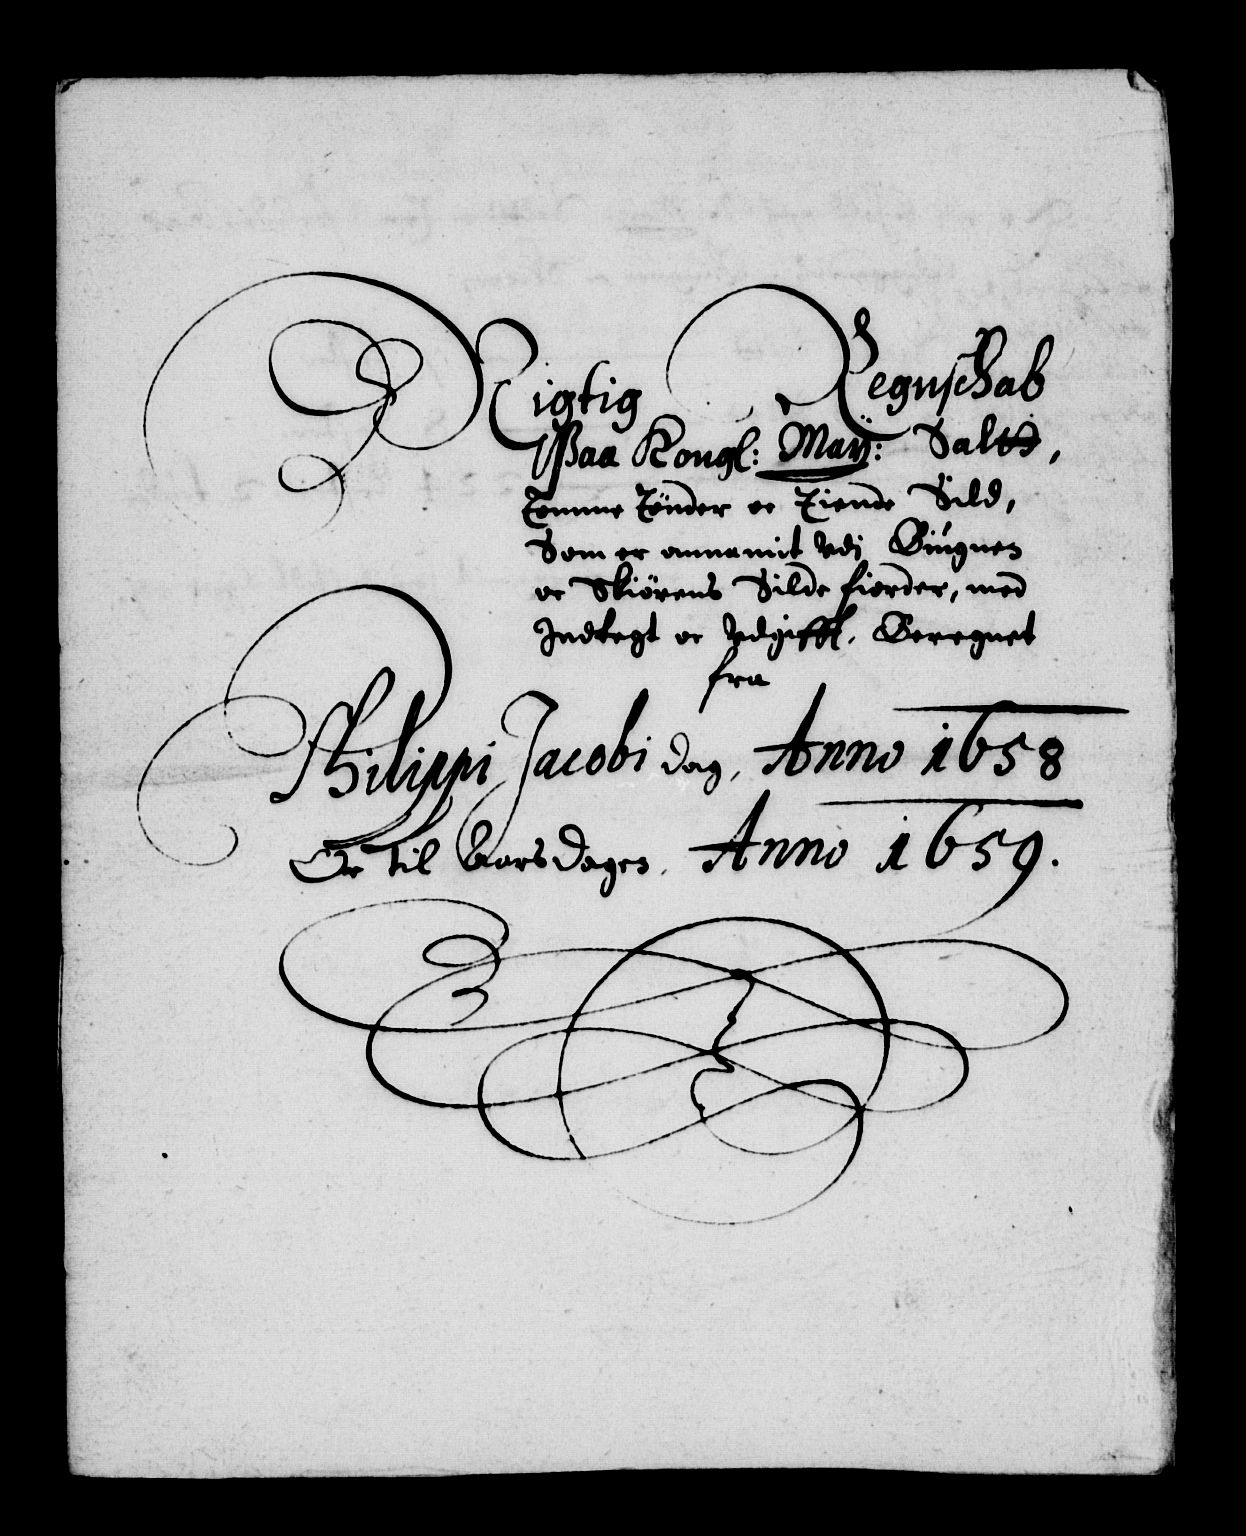 Rigtig Regnschab
Paa Kongl: May: Saltt,
Tomme Tønder oc Tiende Sild,
Som er annamit vdj Giugnes
oc Skiörens Silde fiorder, med
Indtegt oc vdgifft, Beregnet
fra
Philippi Jacobi dag, Anno 1658
Oc til Aarsdagen, Anno 1659.